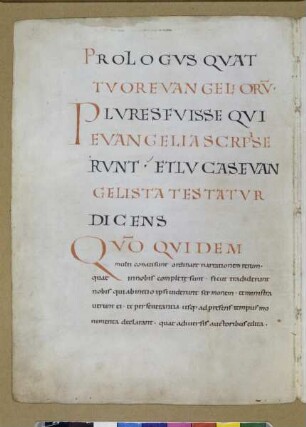 PROLOGUS QUAT
TUOR EVANGELIORŪ·
PLURES FUISSE QUI
EVANGELIA SCRIPSE
RUNT· ET LUCAS EVAN
GELISTA TESTATUR
DICENS
QUŌ QUIDEM
multi conati sunt ordinare narrationem rerum·
quae in nobis complete sunt· sicut tradiderunt
nobis qui ab initio ipsi uiderunt sermonem· et ministra
uerunt ei· et perseuerantia usq· ad presens tempus mo
numenta declarant· quae a diuersis auctoribus edita·